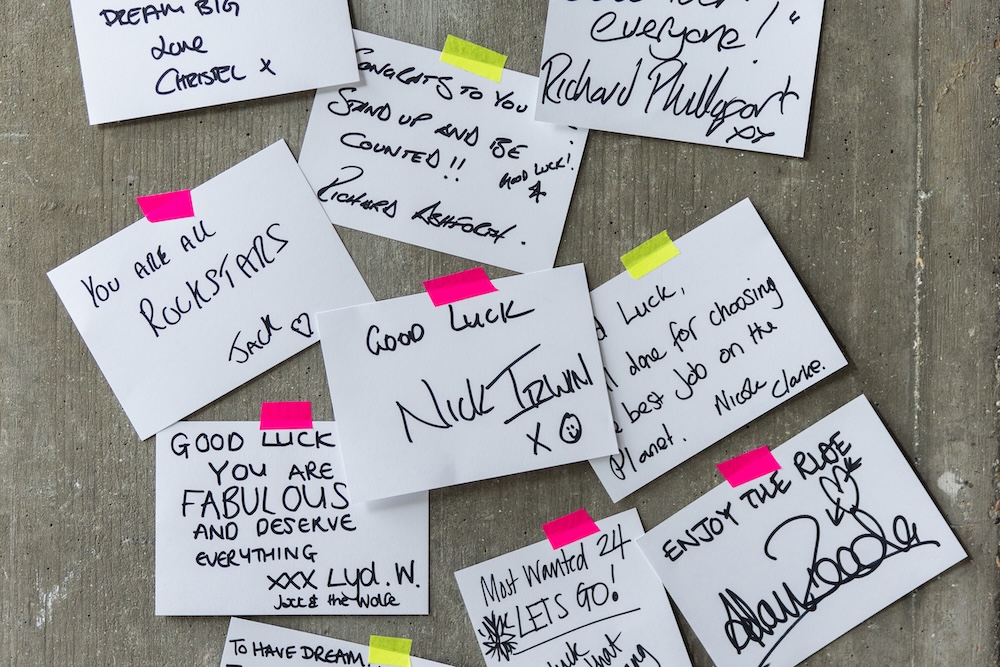 DREAM BIG
Love
CHRISTEL X
everyone!"
Richard Phillipart
xx
CONGRATS TO YOU
STAND UP AND BE
COUNTED!!
GOOD LUCK!
RICHARD ASHFORTH.
YOU ARE ALL
ROCKSTARS
JACK ♡
GOOD LUCK
NICK IRWIN
X ☺
Luck,
done for choosing
best job on the
Planet.
Nicole Clarke.
GOOD LUCK
YOU ARE
FABULOUS
AND DESERVE
EVERYTHING
XXX Lyd. W.
Jack & the Wolfe
Most Wanted 24
LETS GO!
ENJOY THE RIDE
TO HAVE DREAM